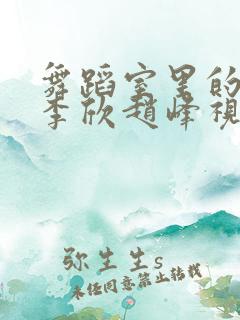 舞蹈室里的
李欣赵峰视
弥生生s
未经同意禁止转载